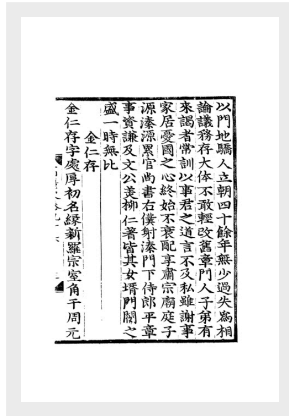 以門地驕人立朝四十餘年無少過失爲相
論議務存大体不敢輕改舊章門人子第有
來謁者常訓以事君之道言不及私雖謝事
家居憂國之心終始不衰配享肅宗廟庭子
源溱源累官尚書右僕射溱門下侍郎平章
事資謙及文公美柳仁著皆其女壻門閥之
盛一時無比
金仁存
金仁存字處厚初名緣新羅宗室角干周元